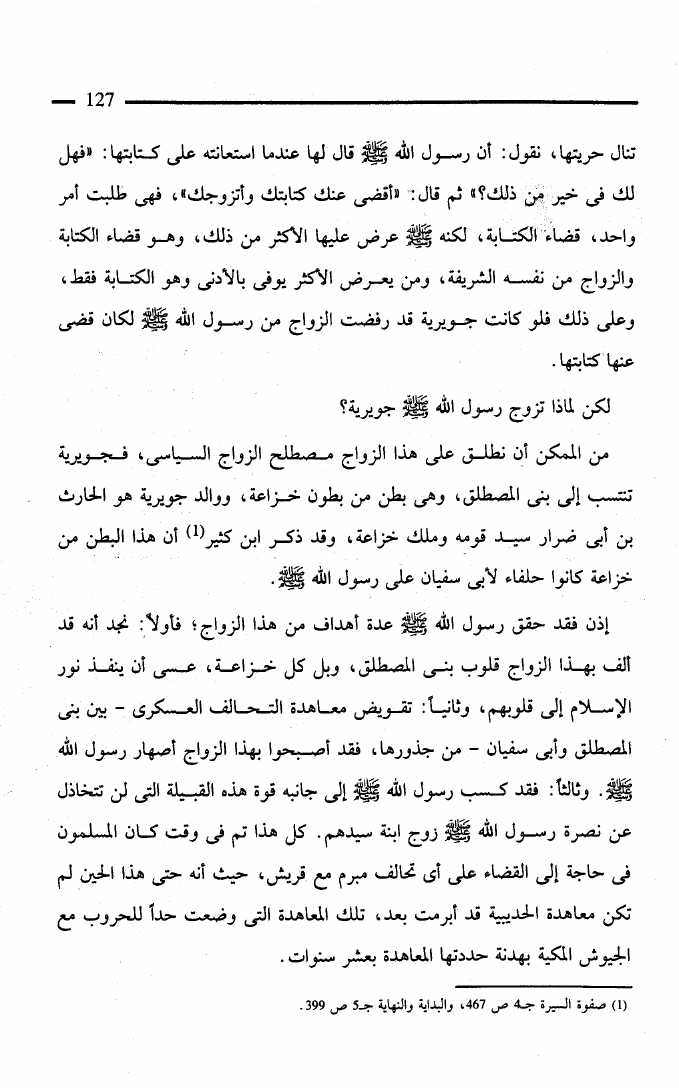 127
تنال حريتها، نقول: أن رسول الله ﷺ قال لها عندما استعانته على كتابتها: «فهل
لك فى خير من ذلك؟» ثم قال: «أقضى عنك كتابتك وأتزوجك»، فهى طلبت أمر
واحد، قضاء الكتابة، لكنه ﷺ عرض عليها الأكثر من ذلك، وهو قضاء الكتابة
والزواج من نفسه الشريفة، ومن يعرض الأكثر يوفى بالأدنى وهو الكتابة فقط،
وعلى ذلك فلو كانت جويرية قد رفضت الزواج من رسول الله ﷺ لكان قضى
عنها كتابتها.
لكن لماذا تزوج رسول الله ﷺ جويرية؟
من الممكن أن نطلق على هذا الزواج مصطلح الزواج السياسى، فجويرية
تنتسب إلى بنى المصطلق، وهى بطن من بطون خزاعة، ووالد جويرية هو الحارث
بن أبى ضرار سيد قومه وملك خزاعة، وقد ذكر ابن كثير(1) أن هذا البطن من
خزاعة كانوا حلفاء لأبى سفيان على رسول الله ﷺ.
إذن فقد حقق رسول الله ﷺ عدة أهداف من هذا الزواج؛ فأولاً: نجد أنه قد
ألف بهذا الزواج قلوب بنى المصطلق، وبل كل خزاعة، عسى أن ينفذ نور
الإسلام إلى قلوبهم، وثانياً: تقويض معاهدة التحالف العسكرى - بين بنى
المصطلق وأبى سفيان - من جذورها، فقد أصبحوا بهذا الزواج أصهار رسول الله
ﷺ. وثالثاً: فقد كسب رسول الله ﷺ إلى جانبه قوة هذه القبيلة التى لن تتخاذل
عن نصرة رسول الله ﷺ زوج ابنة سيدهم. كل هذا تم فى وقت كان المسلمون
فى حاجة إلى القضاء على أى تحالف مبرم مع قريش، حيث أنه حتى هذا الحين لم
تكن معاهدة الحديبية قد أبرمت بعد، تلك المعاهدة التى وضعت حداً للحروب مع
الجيوش المكية بهدنة حددتها المعاهدة بعشر سنوات.
(1) صفوة السيرة جـ4 ص 467، والبداية والنهاية جـ5 ص 399.